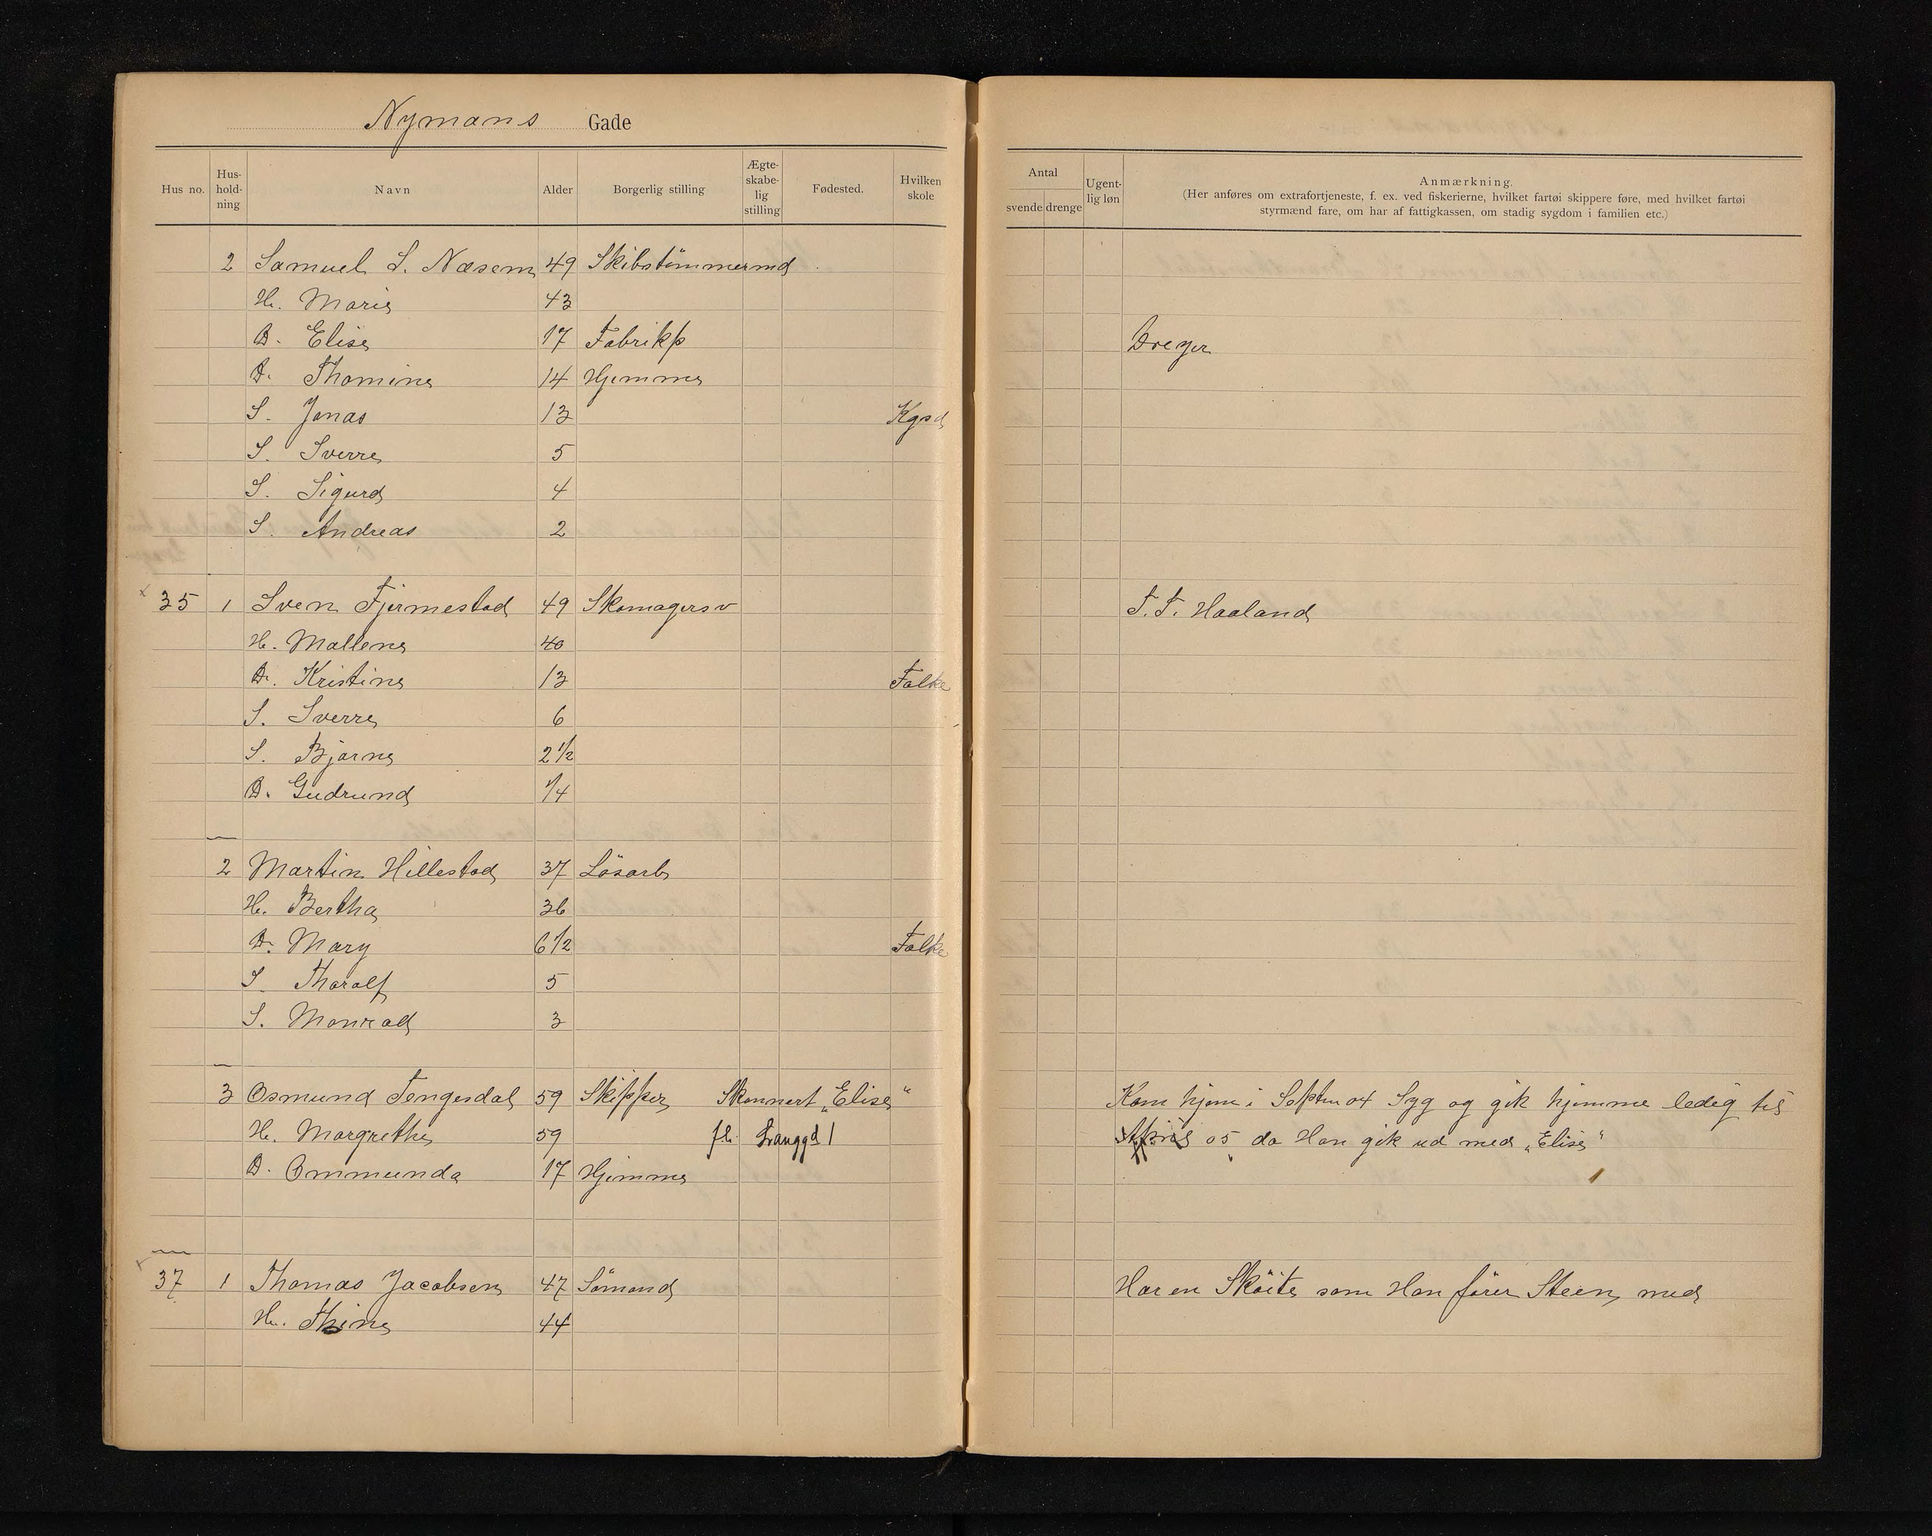 Nymans Gade
Hus no. Hus-hold-ning Navn Alder Borgerlig stilling Ægte-skabe-lig stilling Fødested. Hvilken skole
2 Samuel S. Næsem 49 Skibstömmermd
H. Marie 43
D. Elise 17 Fabrikp
D. Thomine 14 Hjemme
S. Jonas 13 Kgsd
S. Sverre 5
S. Sigurd 4
S. Andreas 2
35 1 Sven Fjermestad 49 Skomagersv
H. Mallene 40
D. Kristine 13 Falke
S. Sverre 6
S. Bjarne 2 1/2
D. Gudrund 1/4
2 Martin Hillestad 37 Lösarb
H. Bertha 36
D. Mary 6 1/2 Falke
S. Tharalf 5
S. Monrad 3
3 Osmund Tengesdal 59 Skipper Skonnert „Elise“
H. Margrethe 59 fl. Langgd 1
D. Ommunda 17 Hjemme
37 1 Thomas Jacobsen 47 Sömand
H. Thine 44
Antal
svende drenge Ugent-lig løn Anmærkning.
(Her anføres om extrafortjeneste, f. ex. ved fiskerierne, hvilket fartøi skippere føre, med hvilket fartøi
styrmænd fare, om har af fattigkassen, om stadig sygdom i familien etc.)
Dreyer
T. T. Haaland
Kom hjem i Septbr 04 Syg og gik hjemme ledig til
April 05 da Han gik ud med „Elise“
Har en Sköite som Han förer Steen med